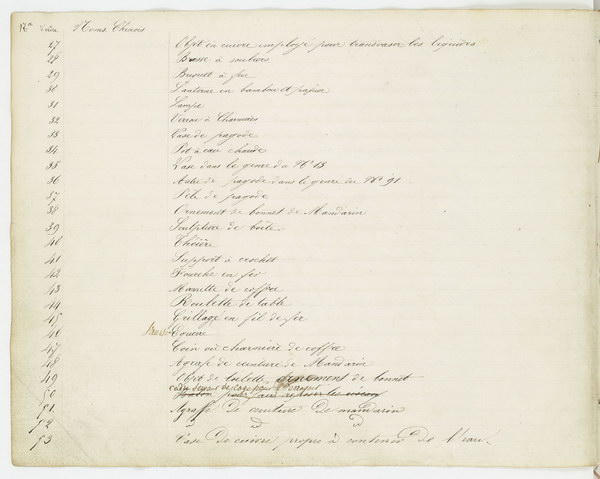 Nos Noms Chinois
27 Objet en cuivre employé pour transvaser les liquides
28 Brosse à souliers
29 Briquet à feu
30 Lanterne en bambou et papier
31 Lampe
32 Verrou à Charnières
33 Vase de pagode
34 Pot à eau chaude
35 Vase dans le genre du No 13
36 Autre de pagode dans le genre du No 91
37 de pagode
38 Ornement de bonnet de Mandarin
39 Sculpture de boîte
40 Théière
41 Support à crochet
42 Fourche en fer
43 de coffre
44 Roulette de table
45 Grillage en fil de fer
46
47 Coin ou charnière de coffre
48 Agrafe de ceinture de Mandarin
49 Objet de toilette, ornement de bonnet
50 pour
51 Agraffe de ceinture de mandarin
52 d d d
53 Vase de cuivre propre à contenir de l'eau